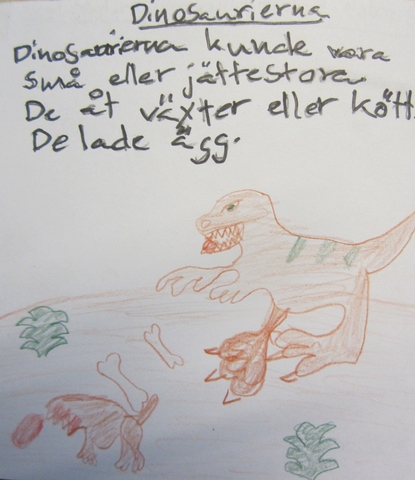 Dinosaurierna
Dinosaurierna kunde vara
små eller jättestora.
De åt växter eller kött.
De lade ägg.